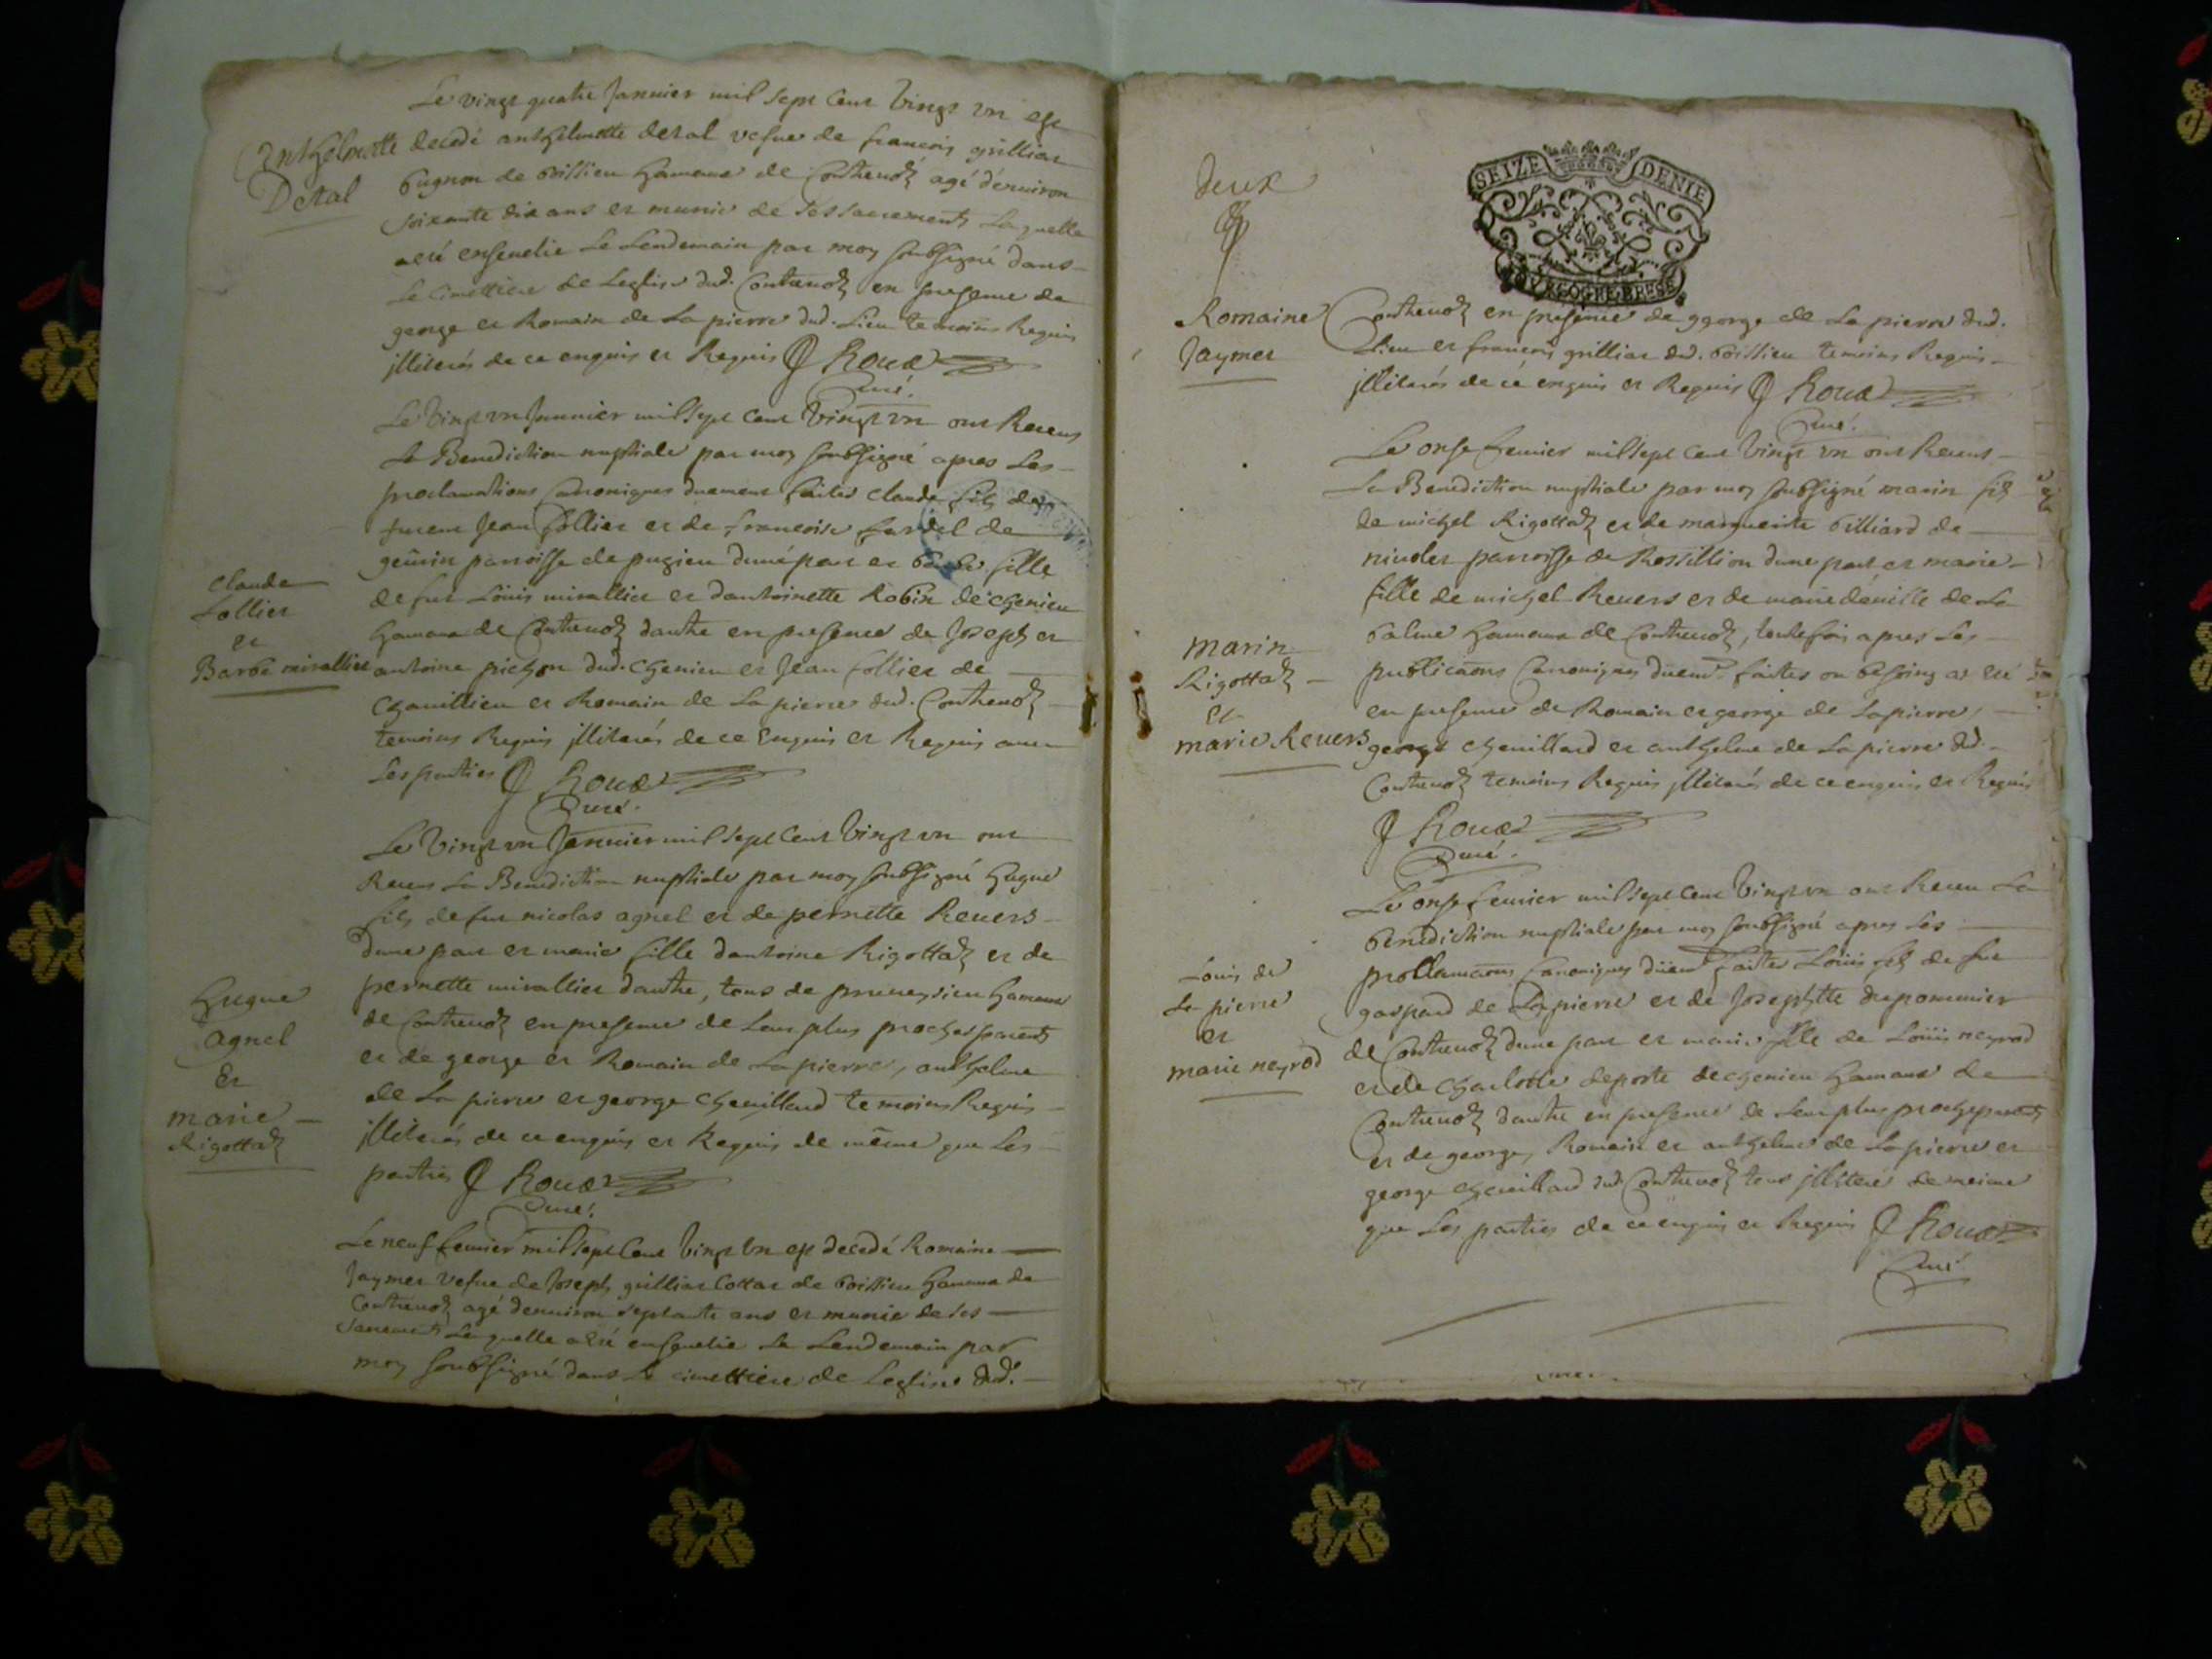 Le vingt quatre Janvier mil sept Cent Vingt vn est
Anthelmette
Detal
decedé anthelmette detal vefue de francois grilliat
bugnon de boissieu hameaux de Contreuoz agé d'enuiron
soixante dix ans et munie de ses sacrements Laquelle
a eté enseuelie Le Lendemain par moy soubsigné dans
Le cimettiere de Leglise dud. Contreuoz en presence de
george et Romain de La pierre dud. Lieu temoins Requis
jlliterés de ce enquis et Requis J Roux
Curé.
Le Vingt vn Januier mil sept Cent Vingt vn ont Receus
La Benediction nuptiale par moy soubsigné apres Les
proclamations Canoniques duement faites claude fils de
furent Jean Collier et de francoise fardel de
geurin parroisse de pugieu dune part et barbe fille
claude
Collier
et
Barbe mirallier
de fut Louis mirallier et dantoinette Robin de chenieu
hameaux de Contreuoz dautre en presence de Joseph et
antoine pichon dud. chenieu et Jean Collier de
chauillieu et Romain de La pierre dud. Contreuoz
temoins Requis jlliterés de ce Enquis et Requis auec
Les parties J Roux
Curé.
Le Vingt vn Januier mil sept Cent Vingt vn ont
Receus La Benediction nuptiale par moy soubsigné hugue
fils de fut nicolas agnel et de pernette Reuers
dune part et marie fille dantoine Rigottaz et de
hugue
agnel
Et
marie
Rigottaz
pernette mirallier dautre, tous de preueyssieu hameaux
de Contreuoz en presence de Leur plus proches parents
et de george et Romain de La pierre, anthelme
de La pierre et george cheuillard temoins Requis
jlliterés de ce enquis et Requis de même que Les
parties J Roux
Curé.
Le neuf feurier mil sept Cent Vingt Vn est decedé Romaine
Jaymet vefue de Joseph grilliat Cottat de boissieu hameau de
Contreuoz agé denuiron septante ans et munie de ses
sacrements Laquelle a Eté enseuelie Le Lendemain par
moy soubsigné dans Le cimettiere de Leglise dud.
deux
SEIZE DENIE
BOVRGOGNE BRESSE
Romaine
Jaymet
Contreuoz en presence de george de La pierre dud.
Lieu et francois grilliat dud. boissieu temoins Requis
jlliterés de ce enquis et Requis J Roux
Curé.
Le onse feurier mil sept Cent Vingt vn ont Receus
La Benediction nuptiale par moy soubsigné marin fils
de michel Rigottaz et de marguerite billiard de
niuolet parroisse de Rossillion dune part et marie
fille de michel Reuers et de marie déuille de La
marin
Rigottaz
Et
marie Reuers
balme hameaux de Contreuoz, toutefois apres Les
publications Canoniques duem.t faites ou besoing at Eté
en presence de Romain et george de Lapierre,
george cheuillard et anthelme de La pierre dud.
Contreuoz temoins Requis jlliterés de ce enquis et Requis
J Roux
Curé.
Le onse feurier mil sept Cent Vingt vn ont Receu La
benediction nuptiale par moy soubsigné apres Les
Louis de
La pierre
et
marie neyrod
prollamations Canoniques düem.t faites Loüis fils de fut
gaspard de La pierre et de Josephtte dupommier
de Contreuoz dune part et marie fille de Loüis neyrod
et de charlotte deporte de chenieu hameaux de
Contreuoz dautre en presence de Leur plus proche parents
et de george, Romain et anthelme de Lapierre et
george cheuillard dud. Contreuoz tous jlliteré de meime
que Les parties de ce enquis et Requis J Roux
Curé